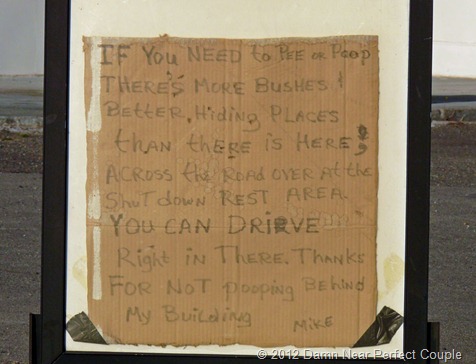 IF YOU NEED to PEE OR POOP
THERE'S MORE BUSHES &
BETTER, HIDING PLACES
than thERE IS HERE;
ACROSS the ROAD OVER At thE
Shut down REST AREA.
YOU CAN DRIEVE
Right in THERE. THANKS
FOR NOT POOPING BEHIND
MY BUILDING
MIKE
© 2012 Damn Near Perfect Couple